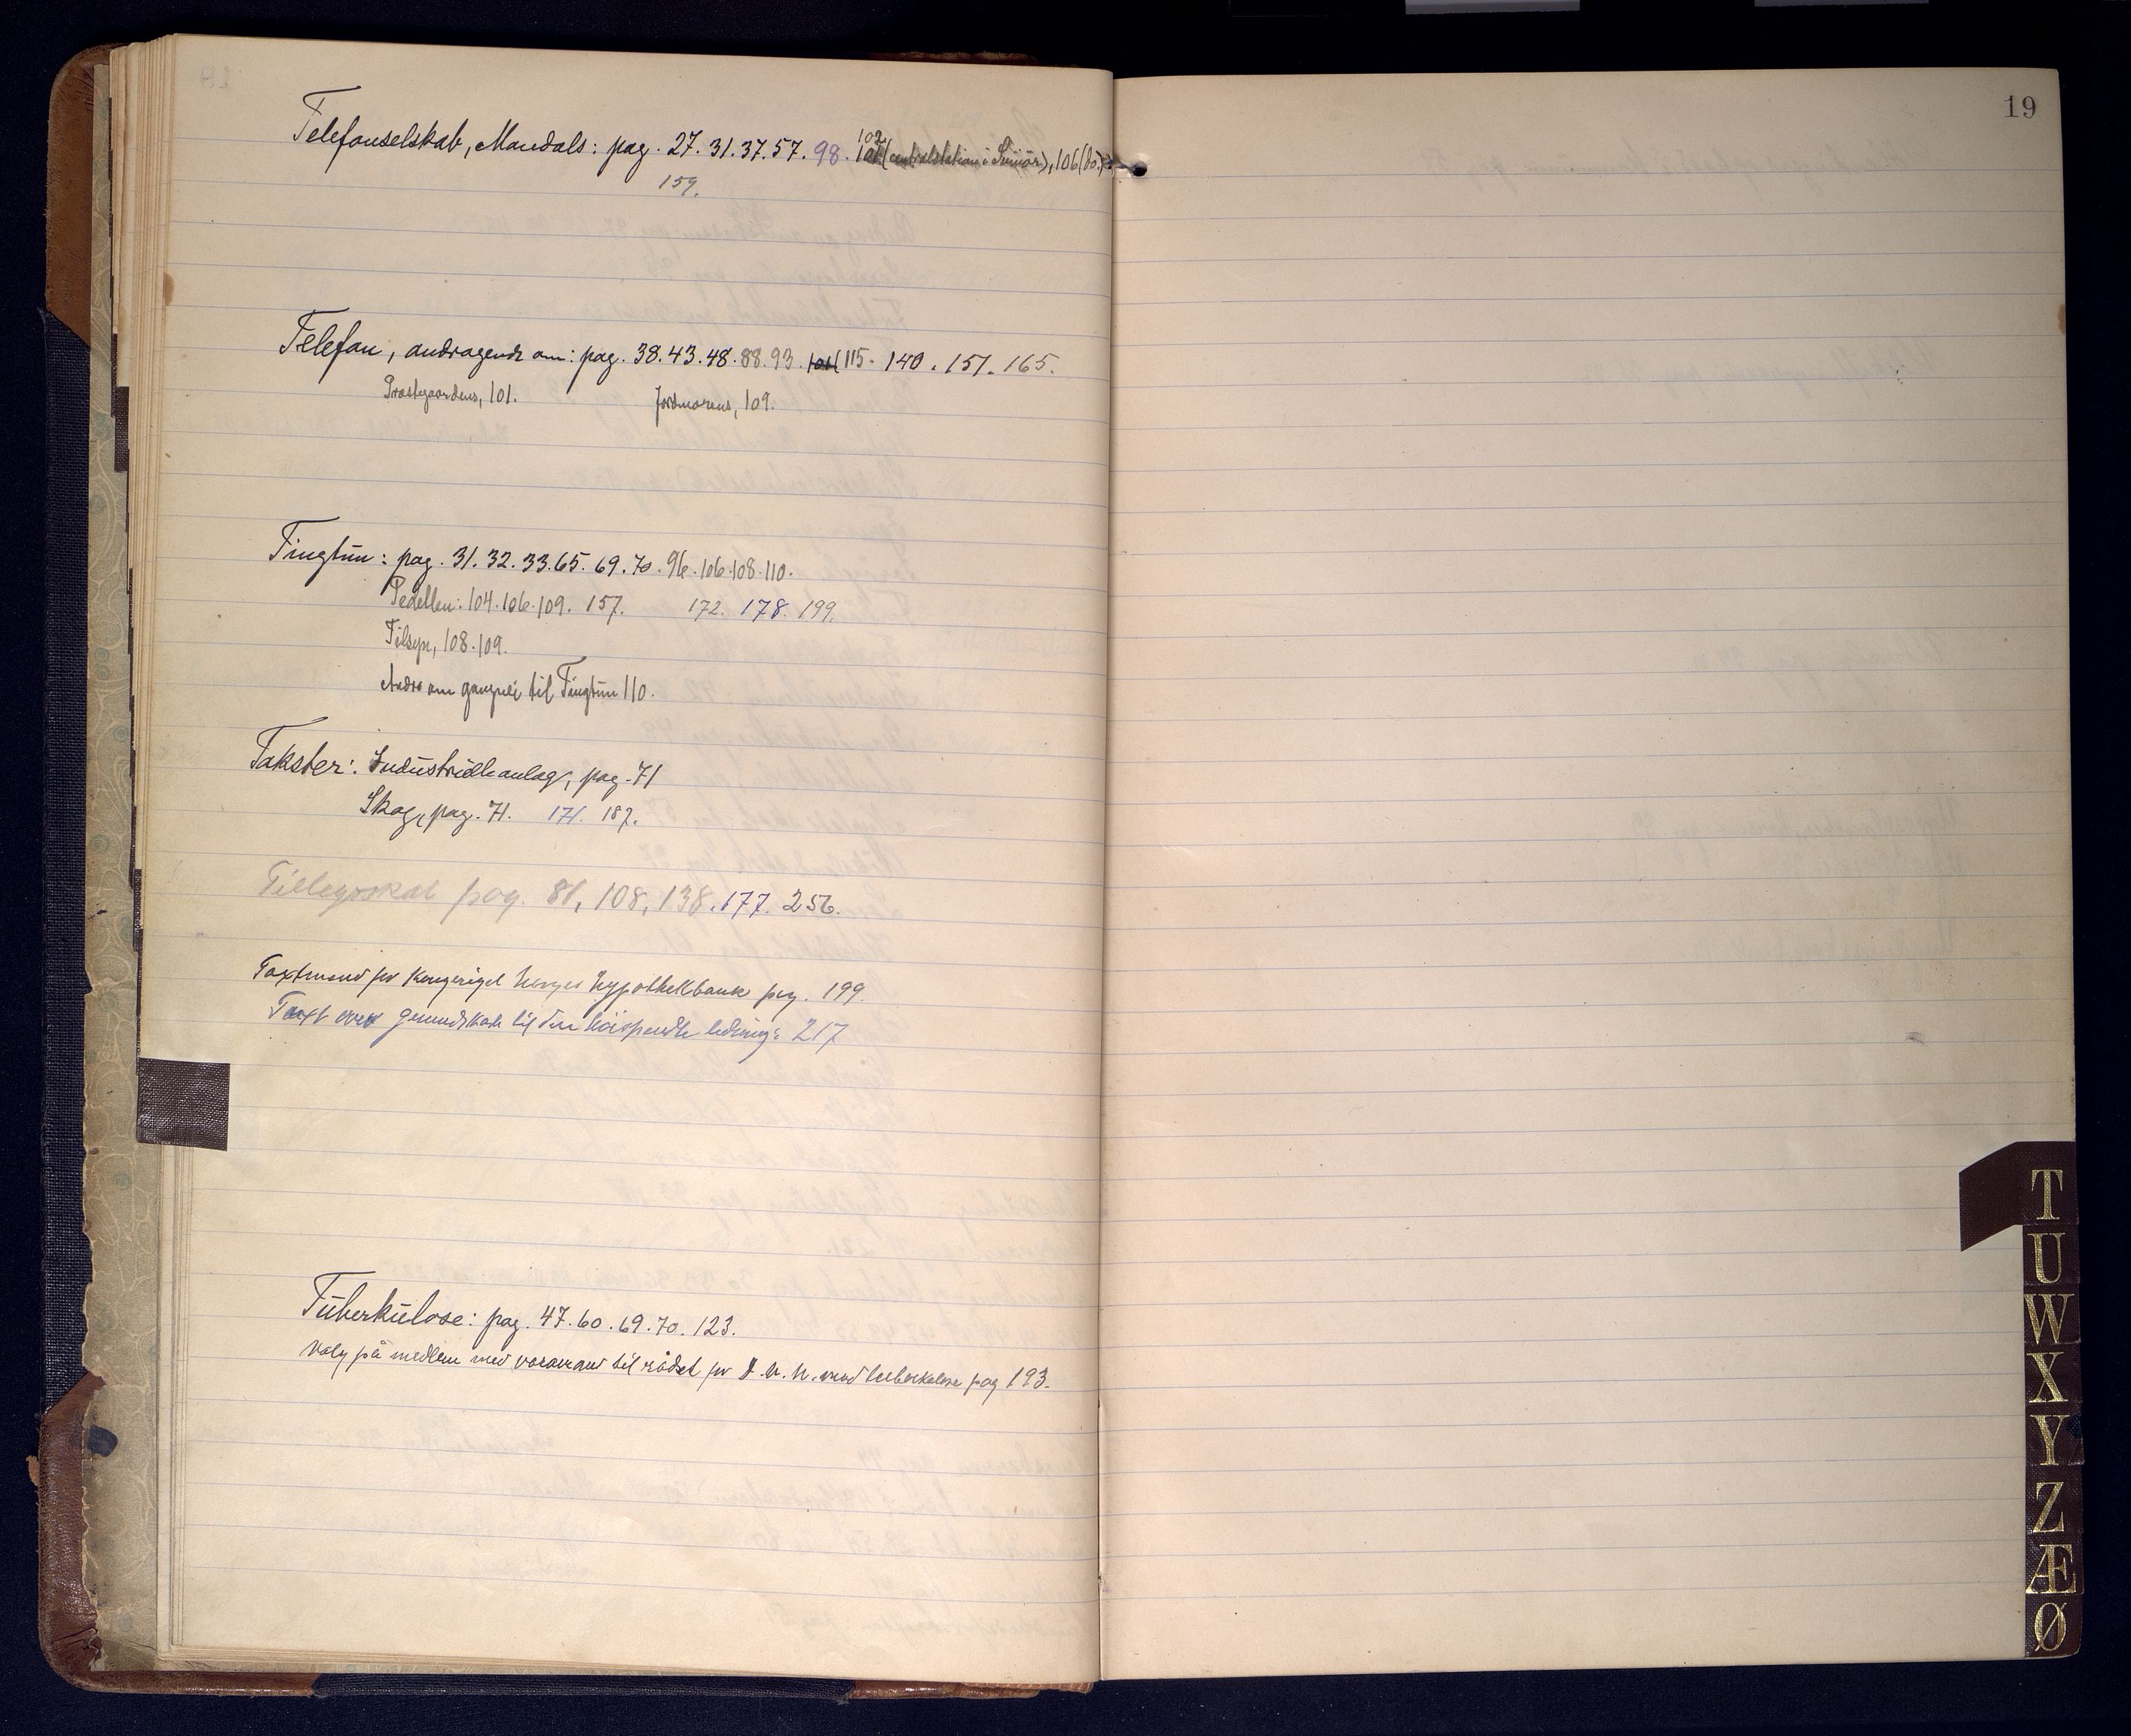 Telefonselskab, Mandals: pag. 27. 31. 37. 57. 98. 102 (centralstation i ), 106 (do.)
159.
Telefon, andragende om: pag. 38. 43. 48. 88. 93. 115. 140. 151. 165.
Prestegaardens, 101. Jordmorens, 109.
Tingtun: pag. 31. 32. 33. 65. 69. 70. 96. 106. 108. 110.
Pedellen: 104. 106. 109. 157. 172. 178. 199.
Tilsyn, 108. 109.
Andr. om gangvei til Tingtun 110.
Takster: Industrielle anlæg, pag. 71
Skog, pag. 71. 171. 187.
Tillegsskat pag. 81, 108, 138. 177. 256.
Taxtmend for Kongeriget Norges Hypothekbank pag. 199.
Taxt over til den høispendte ledning: 217
Tuberkulose: pag. 47. 60. 69. 70. 123.
Valg på medlem med varamand til rådet for D. n. n. mod tuberkulose pag 193.
19
T
U
W
X
Y
Z
Æ
Ø